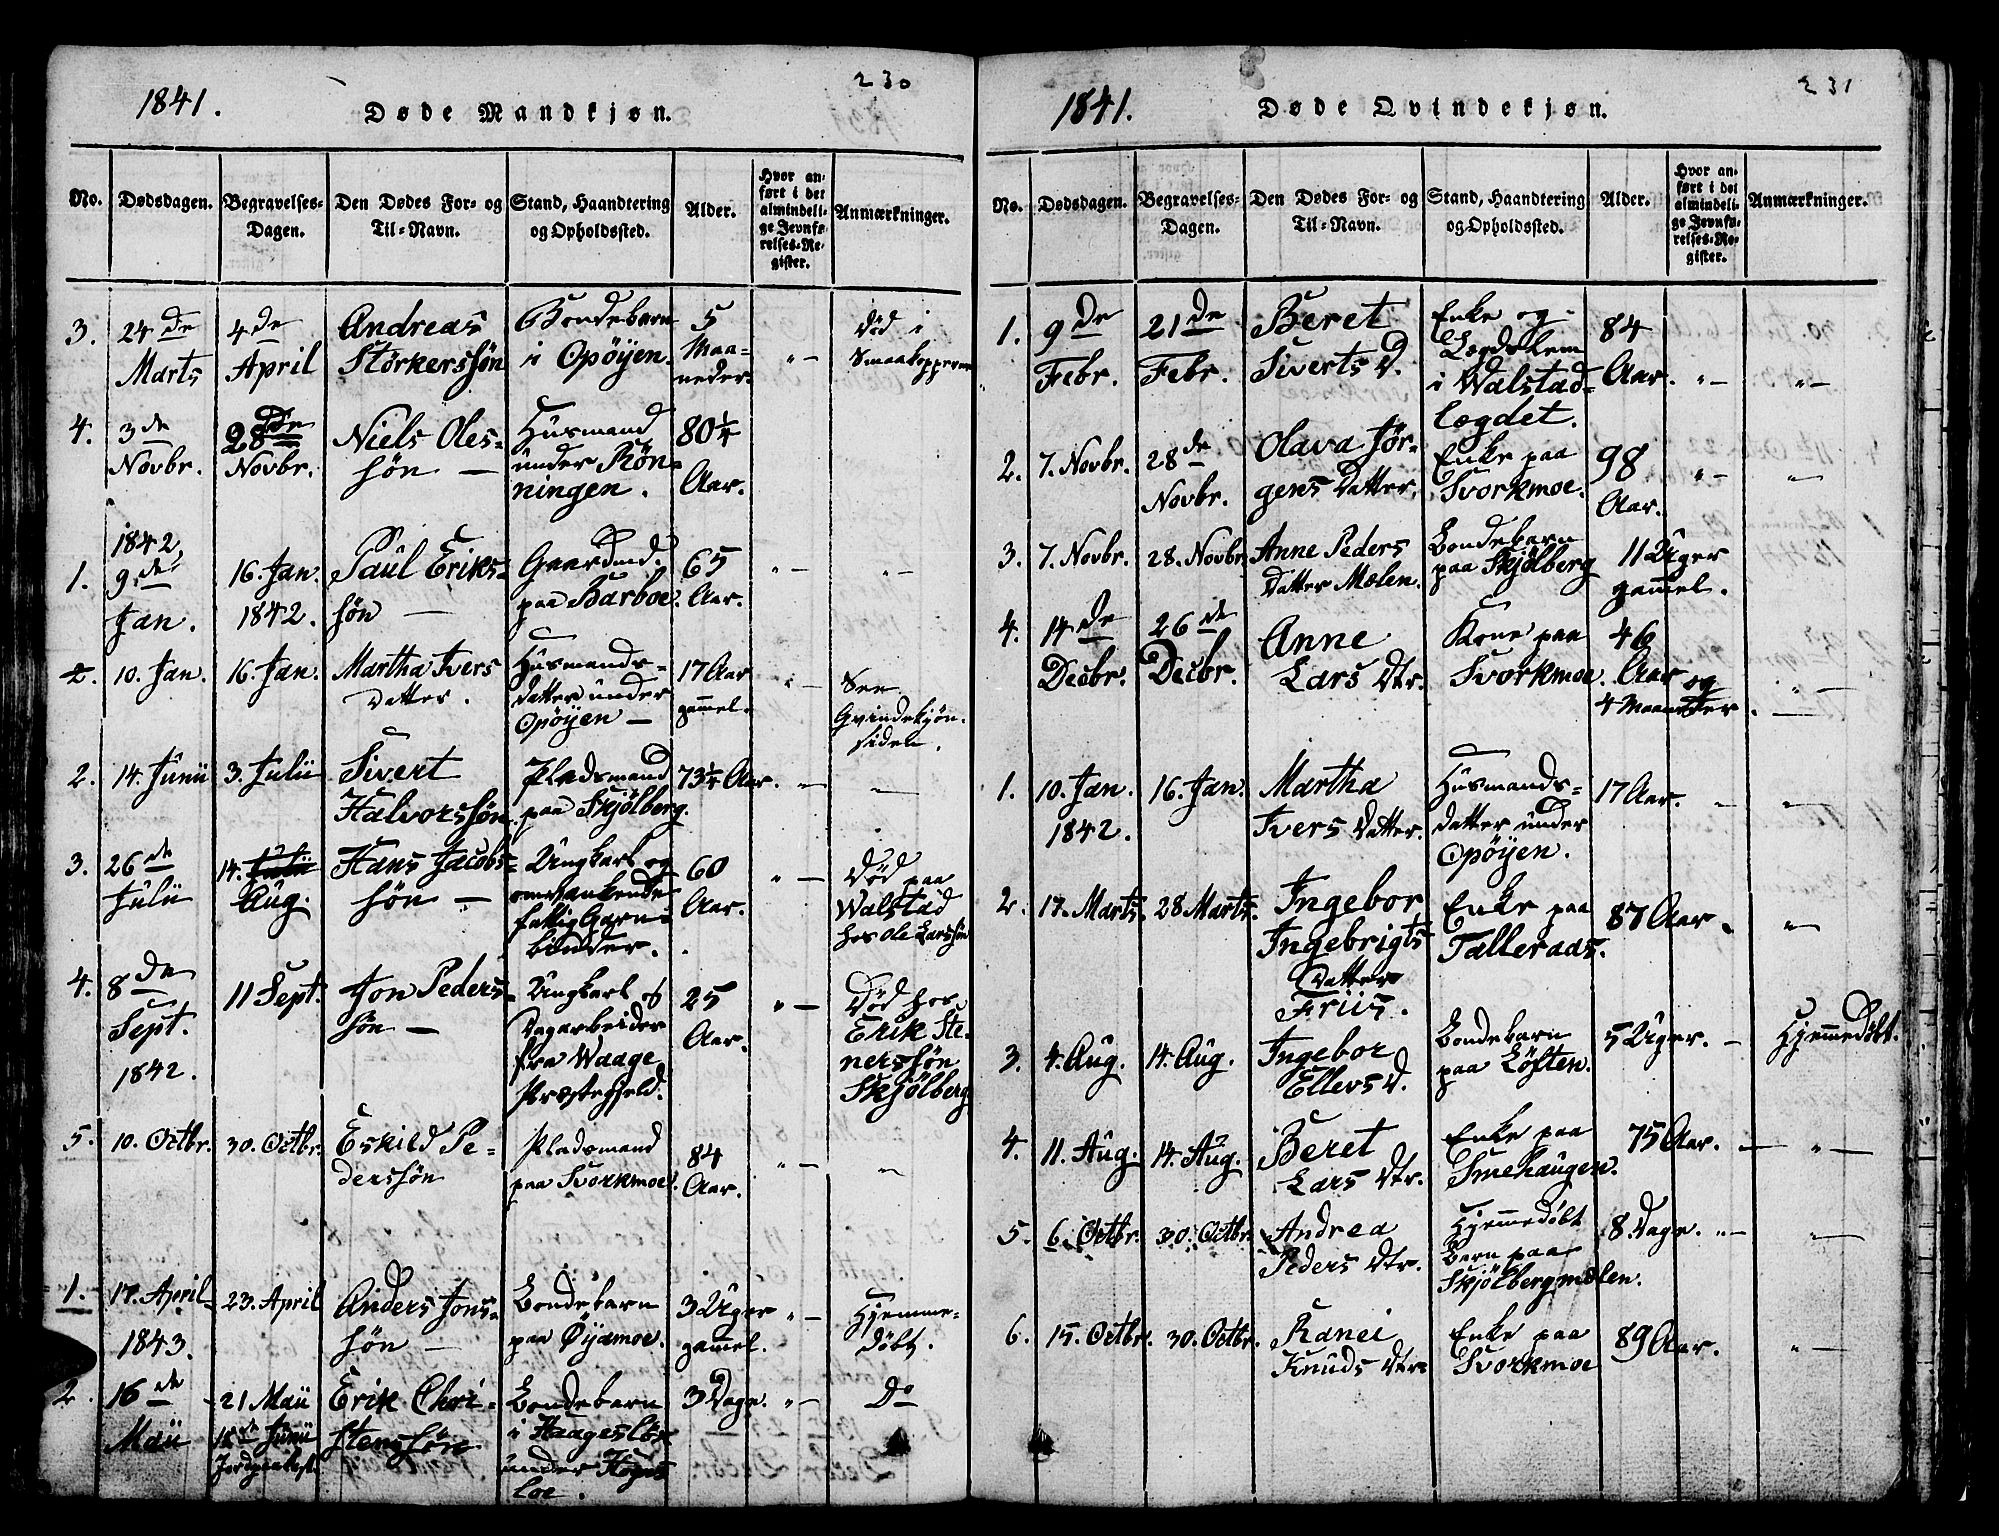 230
1841.
Døde Mandkjøn.
No. Dødsdagen. Begravelses-Dagen. Den Dødes For- og Til-Navn. Stand, Haandtering og Opholdssted. Alder. Hvor anført i det almindelige Jevnførelses-Register. Anmærkninger.
3. 24de Marts 4de April Andreas Størkerssön Bondebarn i Opöyen. 5 Maaneder. " — Död i Smaakopperne
4. 3de Novbr. 28de Novbr. Niels Olessön — Huusmand under Rönningen. 80¼ Aar.
1842,
1. 9de Jan. 16. Jan. 1842. Paul Erikssön — Gaardmd. paa Barboe. 65 Aar. " — " —
2. 10. Jan. 16. Jan. Martha Ivers Datter. Huusmands-Datter under Opöyen — 17 Aar gammel. " — See Qvindekjönsiden.
2. 14. Junii 3. Julii Sivert Halvorssön Pladsmand paa Skjölberg. 73¼ Aar. " — " —
3. 26de Julii 14. Julii Aug. Hans Jacobssön — Ungkarl og omvankende fattig Garnbinder. 60 Aar. " — Död paa Walstad hos Ole Larssön
4. 8de Sept. 1842. 11 Sept. Jon Pederssön — Ungkarl og Dagarbeider fra Waage Præstegjeld. 25 Aar. " — Död hos Erik Stenerssön Skjölberg
5. 10. Octbr. 30. Octbr. Eskild Pederssön Pladsmand paa Svorkmoe 84 Aar. " — " —
1. 17. April 1843. 23. April Anders Jonssön — Bondebarn paa Øyamoe. 3 Uger gammel. " — Hjemmedöbt.
2. 16de Maii 21 Maii 18de Junii Jordpaakast. Erik Christenssön Bondebarn i Haagesløe under Hognsloe. 3 Dage. " — Do
231
1841.
Døde Qvindekjøn.
No. Dødsdagen. Begravelses-Dagen. Den Dødes For- og Til-Navn. Stand, Haandtering og Opholdssted. Alder. Hvor anført i det almindelige Jevnførelses-Register. Anmærkninger.
1. 9de Febr. 21de Febr. Beret Siverts D. Enke og Lægdslem i Walstad-lægdet. 84 Aar. " — " —
2. 7. Novbr. 28de Novbr. Olava Jörgens Datter. Enke paa Svorkmoe. 98 Aar. " — " —
3. 7. Novbr. 28. Novbr. Anne Peders Datter Mælen. Bondebarn paa Skjölberg 11 Uger gammel.
4. 14de Decbr. 26de Decbr. Anne Lars Dtr. Kone paa Svorkmoe. 46 Aar og 4 Maaneder. " —
1. 10. Jan. 1842. 16. Jan. Martha Ivers Datter. Huusmands-datter under Opöyen. 17 Aar. " — "
2. 17. Marts. 28 Marts. Ingebor Ingebrigts Datter Friis. Enke paa Talleraas. 87 Aar. " —
3. 4. Aug. 14. Aug. Ingebor Ellevs D. Bondebarn paa Löften. 5 Uger. — Hjemmedöbt.
4. 11. Aug. 14. Aug. Beret Lars Dtr. Enke paa Smehaugen. 75 Aar. — " —
5. 6. Octbr. 30. Octbr. Andrea Peders Dtr. Hjemmedöbt Barn paa Skjölbergmælen. 8 Dage. " — " —
6. 15. Octbr. 30. Octbr. Ranei Knuds Dtr Enke paa Svorkmoe 89 Aar. " —